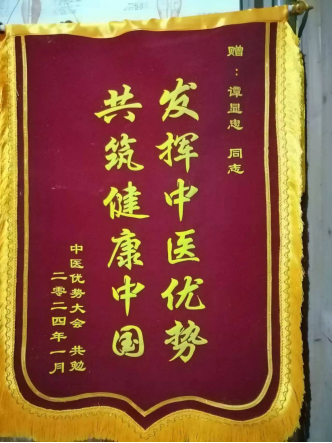 赠：谭显忠 同志
发挥中医优势
共筑健康中国
中医优势大会 共勉
二零二四年一月